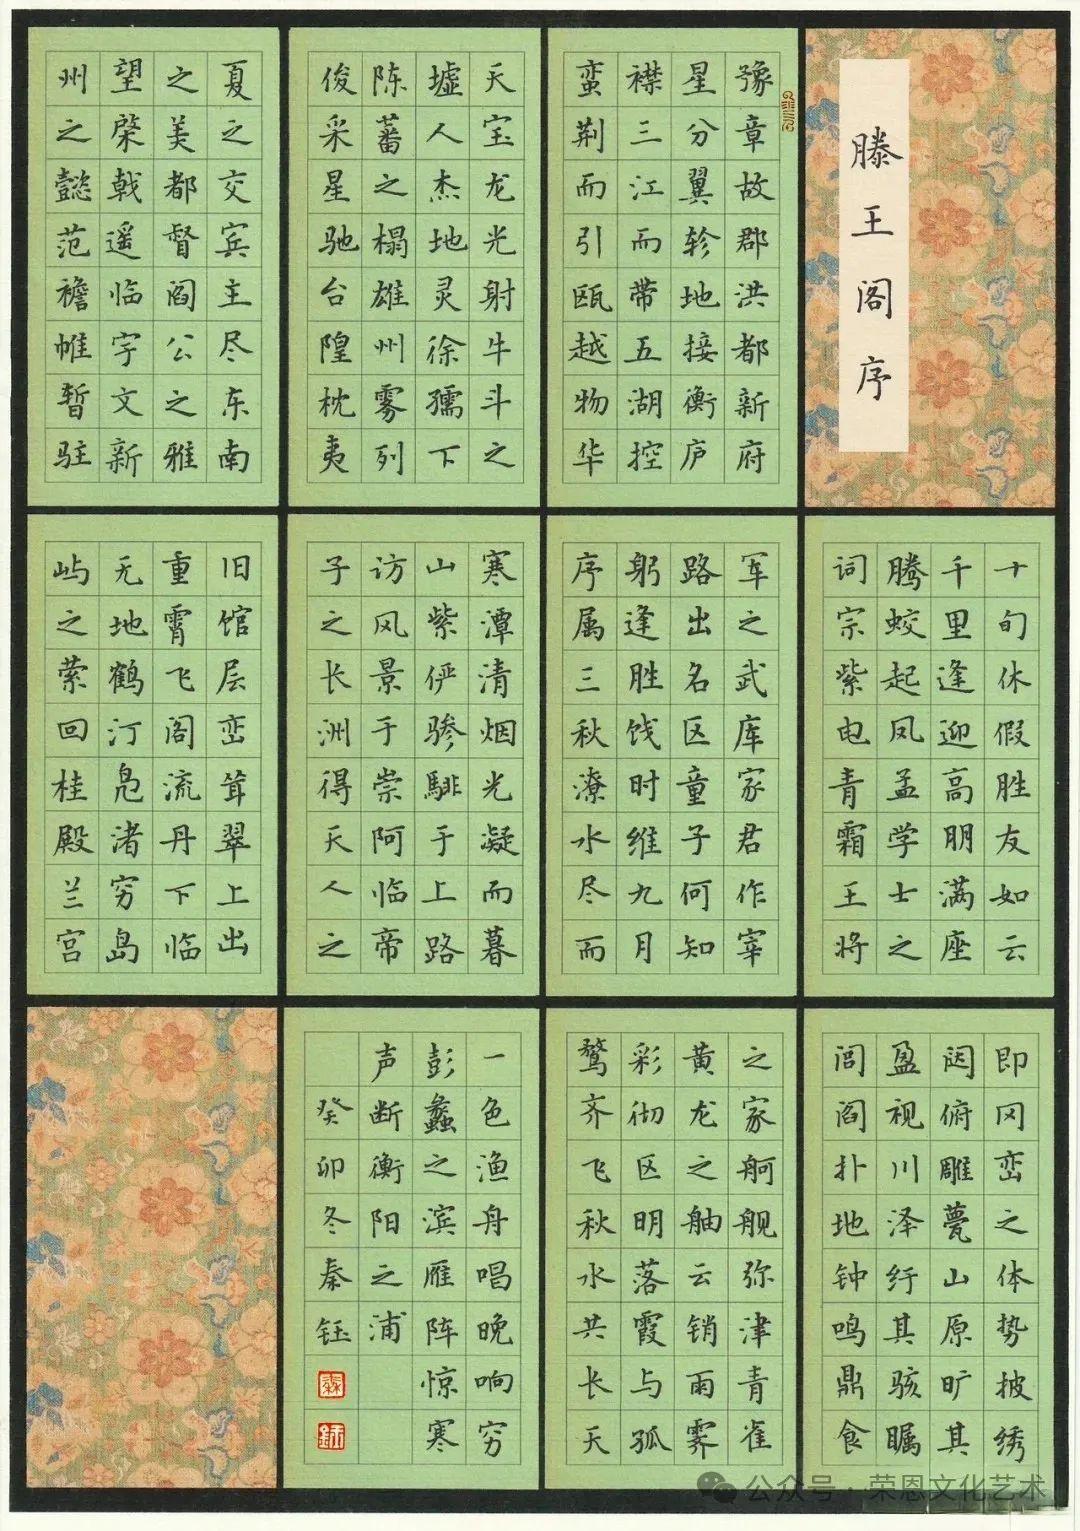 滕王阁序
豫章故郡洪都新府
星分翼轸地接衡庐
襟三江而带五湖控
蛮荆而引瓯越物华
天宝龙光射牛斗之
墟人杰地灵徐孺下
陈蕃之榻雄州雾列
俊采星驰台隍枕夷
夏之交宾主尽东南
之美都督阎公之雅
望棨戟遥临宇文新
州之懿范襜帷暂驻
十旬休假胜友如云
千里逢迎高朋满座
腾蛟起凤孟学士之
词宗紫电青霜王将
军之武库家君作宰
路出名区童子何知
躬逢胜饯时维九月
序属三秋潦水尽而
寒潭清烟光凝而暮
山紫俨骖騑于上路
访风景于崇阿临帝
子之长洲得天人之
旧馆层峦耸翠上出
重霄飞阁流丹下临
无地鹤汀凫渚穷岛
屿之萦回桂殿兰宫
即冈峦之体势披绣
闼俯雕甍山原旷其
盈视川泽纡其骇瞩
闾阎扑地钟鸣鼎食
之家舸舰弥津青雀
黄龙之舳云销雨霁
彩彻区明落霞与孤
鹜齐飞秋水共长天
一色渔舟唱晚响穷
彭蠡之滨雁阵惊寒
声断衡阳之浦
癸卯冬秦钰
公众号·荣恩文化艺术